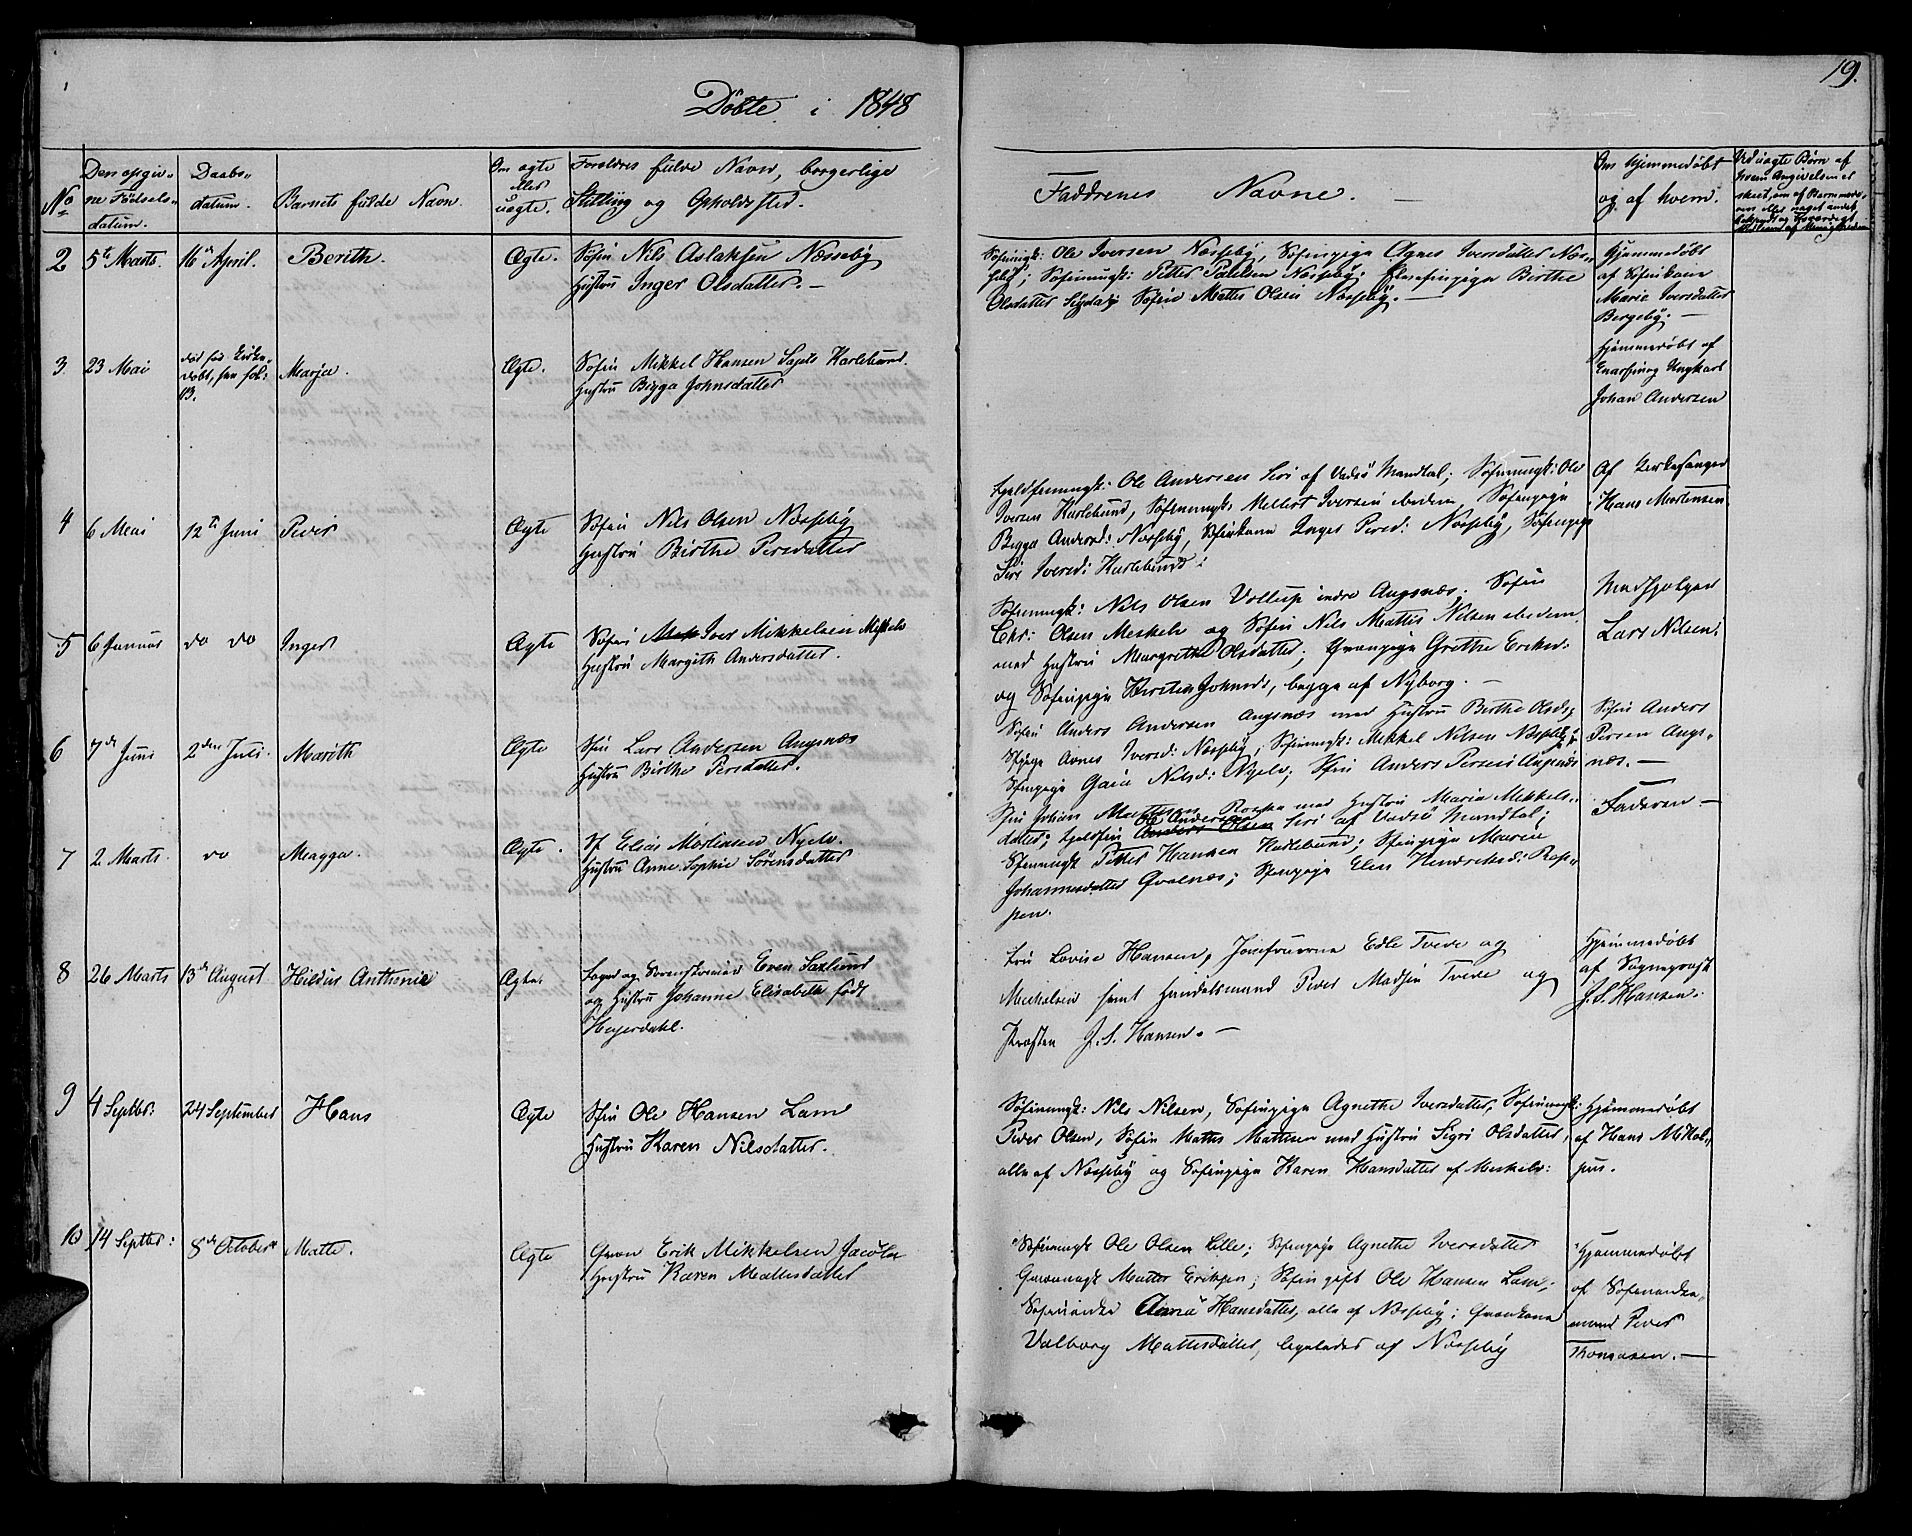 19.
Døbte i 1848
No
Den opgiv-
ne Fødsels-
datum.
Daabs-
datum.
Barnets fulde Navn.
Om ægte
eller
uægte.
Forældres fulde Navn, borgerlige
Stilling og Opholdssted.
Faddrenes Navne.
Om hjemmedøbt
og af hvem.
Ved uægte Børn af
hvem Angivelsen er
2
5te Marts.
16de April.
Berith.
Ægte.
Søfin Nils Aslaksen Næsseby
Hustru Inger Olsdatter.
Søfinungk: Ole Iversen Næsseby, Søfinpige Agnes Iversdatter Næs-
seby; Søfinungk: Petter Paulsen Næsseby; Elvefinpige Birthe
Olsdatter Søfin Mattis Olsen Næsseby.
Hjemmedøbt
af Søfinkone
Marie Iversdatter
Bergeby.
3
23 Mai
Marja.
Ægte.
Søfin Mikkel Hansen Karlebund.
Hustru Bigga Johnsdatter
Hjemmedøbt af
Enarefinsk Ungkarl
Johan Andersen
4
6 Mai
12te Juni
Peder
Ægte
Søfin Nils Olsen Næsseby
Hustru Birthe Persdatter
Fjeldfinungk: Ole Andersen Siri af Vadsø Mandtal; Søfinungk: Ole
Iversen Karlebund, Søfinungk: Mellet Iversen ibidem, Søfinpige
Bigga Andersd: Næsseby, Søfinkone Inger Persd: Næsseby, Søfinpige
Siri Iversd: Karlebund.
Af Kirkesanger
Hans Mortensen
5
6 Januar
do do
Inger
Ægte
Søfin Iver Mikkelsen Meskelv
Hustru Margith Andersdatter.
Søfinungk: Nils Olsen Vollup indre Angsnæs; Søfin
Chr: Olsen Meskelv og Søfin Nils Mattis Nilsen ibidem
med Hustru Margrethe Olsdatter; Qvænpige Grethe Eriksd:
og Søfinpige Kirsten Johnsd:, begge af Nyborg.
Medhjelper
Lars Nilsen.
6
7de Juni
2den Juli.
Marith
Ægte
Sfin Lars Andersen Angsnæs
Hustru Birthe Persdatter.
Søfin Anders Andersen Angsnæs med Hustru Birthe Olsd;
Sfpige Agnes Iversd: Næsseby, Søfinungk: Mikkel Nilsen Næsseby;
Sfinpige Gaia Nilsd: Nyelv; Sfin Anders Persen Angsnæs
Søfin Anders
Persen Angs-
næs.
7
2 Marts.
do
Magga.
Ægte.
Sf Elias Mortensen Nyelv.
Hustru Anne Sophie Sørensdatter
Sfin Johan Mathisen med Hustru Maria Mikkels-
datter; Fjeldfin Ole Andersen Siri af Vadsø Mandtal;
Sfinungk Petter Hansen Karlebund; Sfinpige Maria
Johannesdatter Qvalnæs; Sfinpige Elen Hendriksd: Rep-
pen.
Faderen
8
26 Marts
13de August
Hildur Anthonie
Ægte.
Foged og Sorenskriver Even Saxlund
og Hustru Johanne Elisabeth født
Hejerdahl.
Fru Lovise Hansen, Jomfruerne Edle Tvede og
Mickelsen samt Handelsmand Peder Madsen Tvede og
Provsten J. S. Hansen.
Hjemmedøbt
af Sognepræst
J. S. Hansen.
9
4 Septbr:
24 September
Hans
Ægte
Sfin Ole Hansen Lam
Hustru Karen Nilsdatter.
Søfinungk: Nils Nilsen, Søfinpige Agnethe Iversdatter, Søfinungk:
Peder Olsen, Søfin Mattis Mattisen med Hustru Sigri Olsdatter,
alle af Næsseby og Søfinpige Karen Hansdatter af Meskelv:
Hjemmedøbt
af Hans Mikkel-
sen.
10
14 Septbr:
8de October
Matte.
Ægte
Qvæn Erik Mikkelsen
Hustru Karen Mattisdatter
Søfinungk Ole Olsen Lille; Søfinpige Agnethe Iversdatter
Qvænungk Mattis Eriksen; Søfin gift Ole Hansen Lam,
Søfinenke Anna Hansdatter, alle af Næsseby; Qvænkone
Valborg Mattisdatter, ligeledes af Næsseby
Hjemmedøbt
af Søfinenke-
mand Peder
Thomasen.